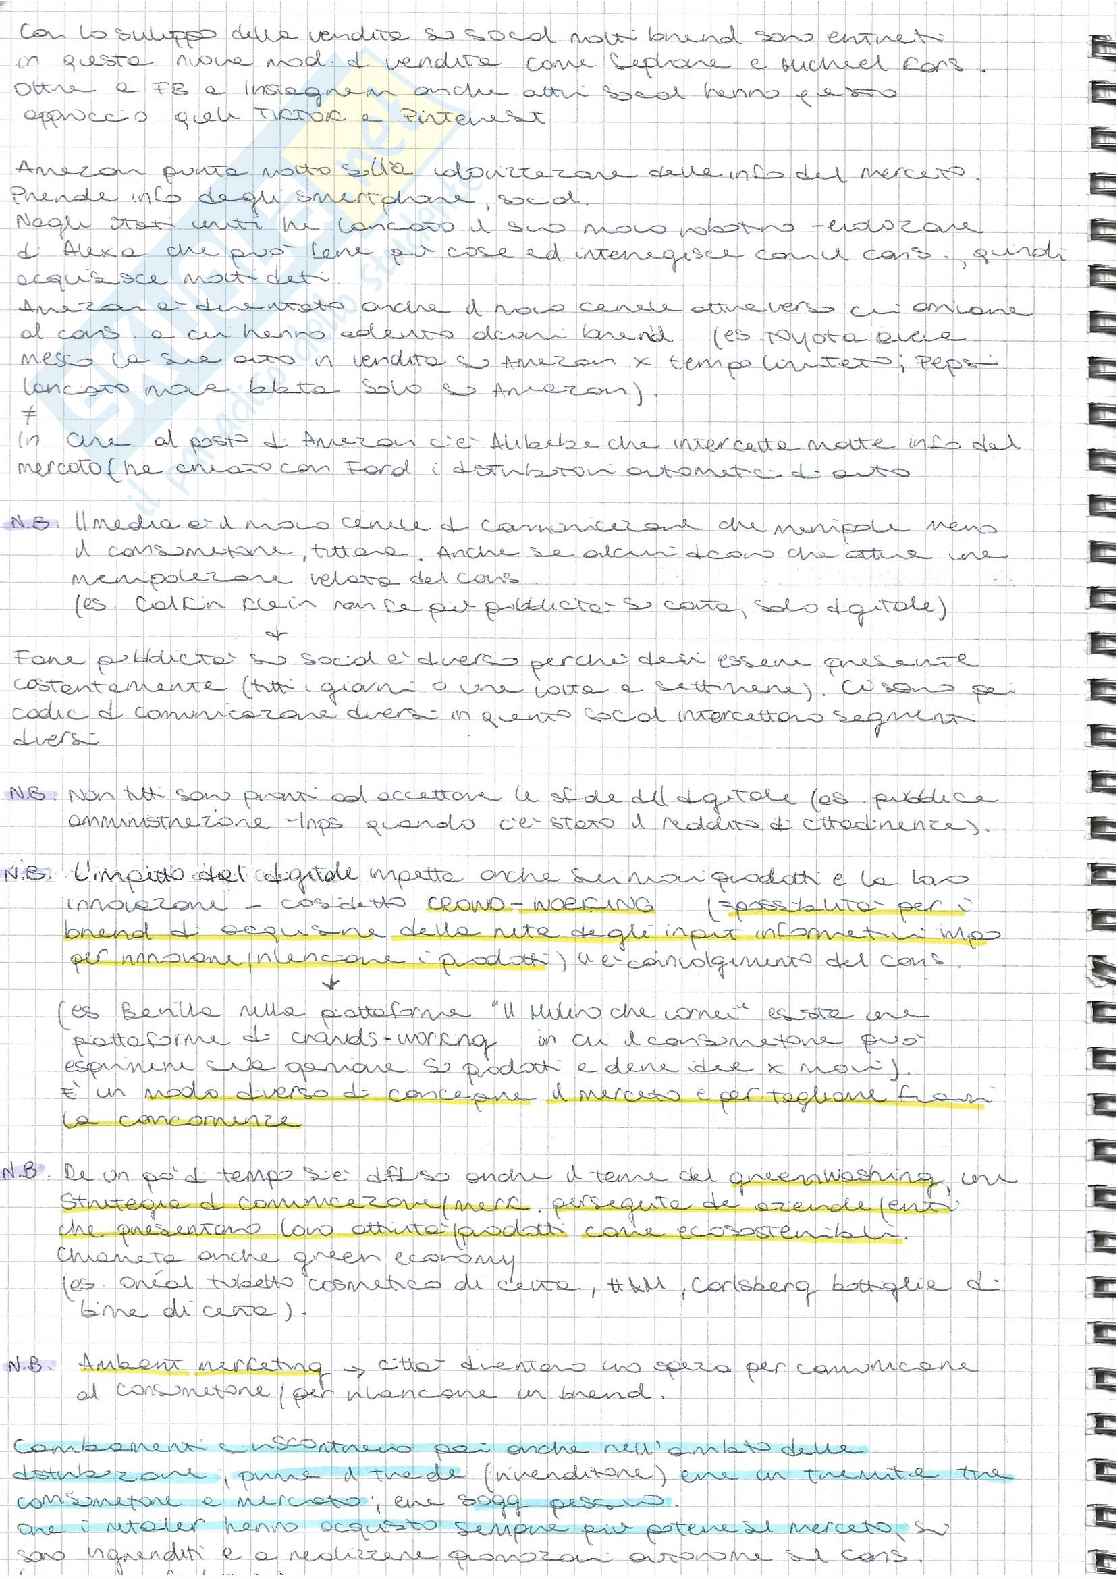 Con lo sviluppo della vendita su social molti brand sono entrati
in questa nuova mod. di vendita come Sephora e Michael Kors.
Oltre a FB e Instagram anche altri social hanno questo
approccio quali TIKTOK e Pinterest
Amazon punta molto sulla delle info del mercato.
Prende info dagli smartphone, social.
Negli Stati Uniti ha lanciato il suo nuovo robottino - evoluzione
di Alexa che può fare più cose ed interagisce con il cons., quindi
acquisisce molti dati.
Amazon è diventato anche il nuovo canale attraverso cui arrivare
al cons. a cui hanno aderito alcuni brand (es Toyota aveva
messo la sua auto in vendita su Amazon x tempo limitato; Pepsi
lanciato nuova bibita solo su Amazon).
≠
In Cina al posto di Amazon c'è Alibaba che intercetta molte info del
mercato (ha creato con Ford i distributori automatici di auto
N.B. Il media è il nuovo canale di comunicazione che manipola meno
il consumatore, tuttavia. Anche se alcuni dicono che attua una
manipolazione velata del cons
(es Calvin Klein non fa più pubblicità su carta, solo digitale)
↓
Fare pubblicità su social è diverso perché devi essere presente
costantemente (tutti i giorni o una volta a settimana). Ci sono poi
codici di comunicazione diversi in quanto social intercettano segmenti
diversi
N.B. Non tutti sono pronti ad accettare le sfide del digitale (es. pubblica
amministrazione - Inps quando c'è stato il reddito di cittadinanza).
N.B. L'impatto del digitale impatta anche sui nuovi prodotti e la loro
innovazione - cosidetto CROWD-WORKING (possibilità per i
brend di acquisire dalla rete degli input informativi imp
per innovare/rilanciare i prodotti) coinvolgimento del cons.
↓
(es Barilla nella piattaforma "Il Mulino che vorrei" esiste una
piattaforma di crowds-working in cui il consumatore può
esprimersi sulla gamma di prodotti e dare idee x nuovi).
È un modo diverso di concepire il mercato e per tagliare fuori
la concorrenza
N.B. Da un po' di tempo si è diffuso anche il tema del greenwashing, una
Strategia di comunicazione/merk. perseguita da aziende/enti
che presentano loro attività/prodotti come ecosostenibili.
Chiamata anche green economy
(es. Oréal tubetto cosmetico di carta, H&M, Carlsberg bottiglie di
birra di carta).
N.B. Ambient marketing → città diventano uno spazio per comunicare
al consumatore/per rilanciare un brand.
Cambiamenti si riscontrano poi anche nell'ambito della
distribuzione, prima il trade (rivenditore) era un tramite tra
consumatore e mercato; era sogg passivo.
ora i retailer hanno acquisito sempre più potere sul mercato, si
sono ingranditi e a realizzare promozioni autonome sul cons.